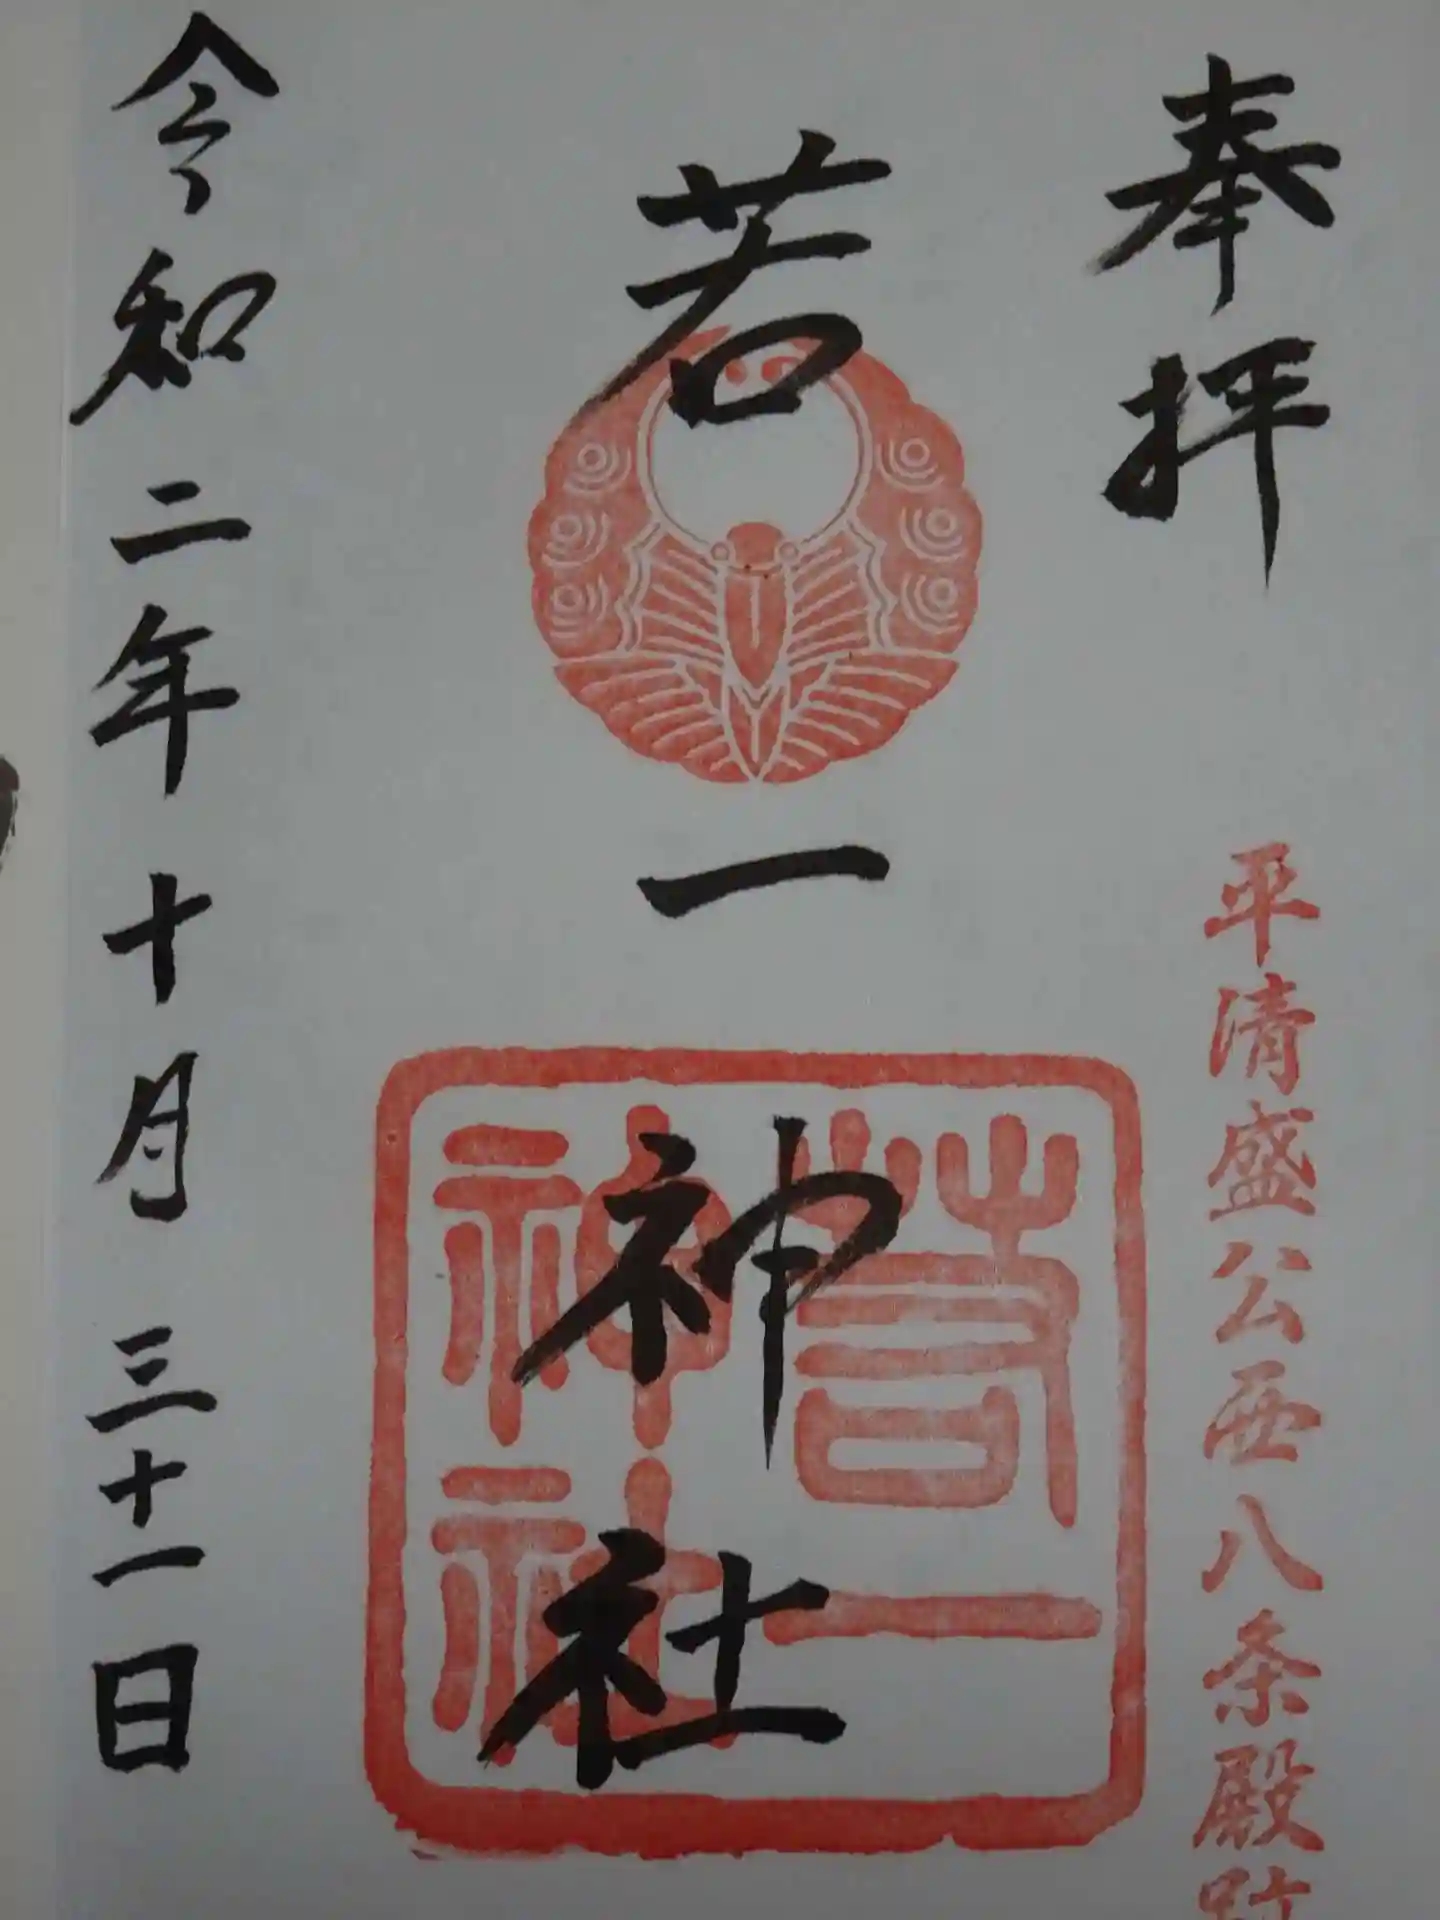 奉拝
平清盛公西八条殿跡
若一神社
若一
神社
令和二年十月三十一日